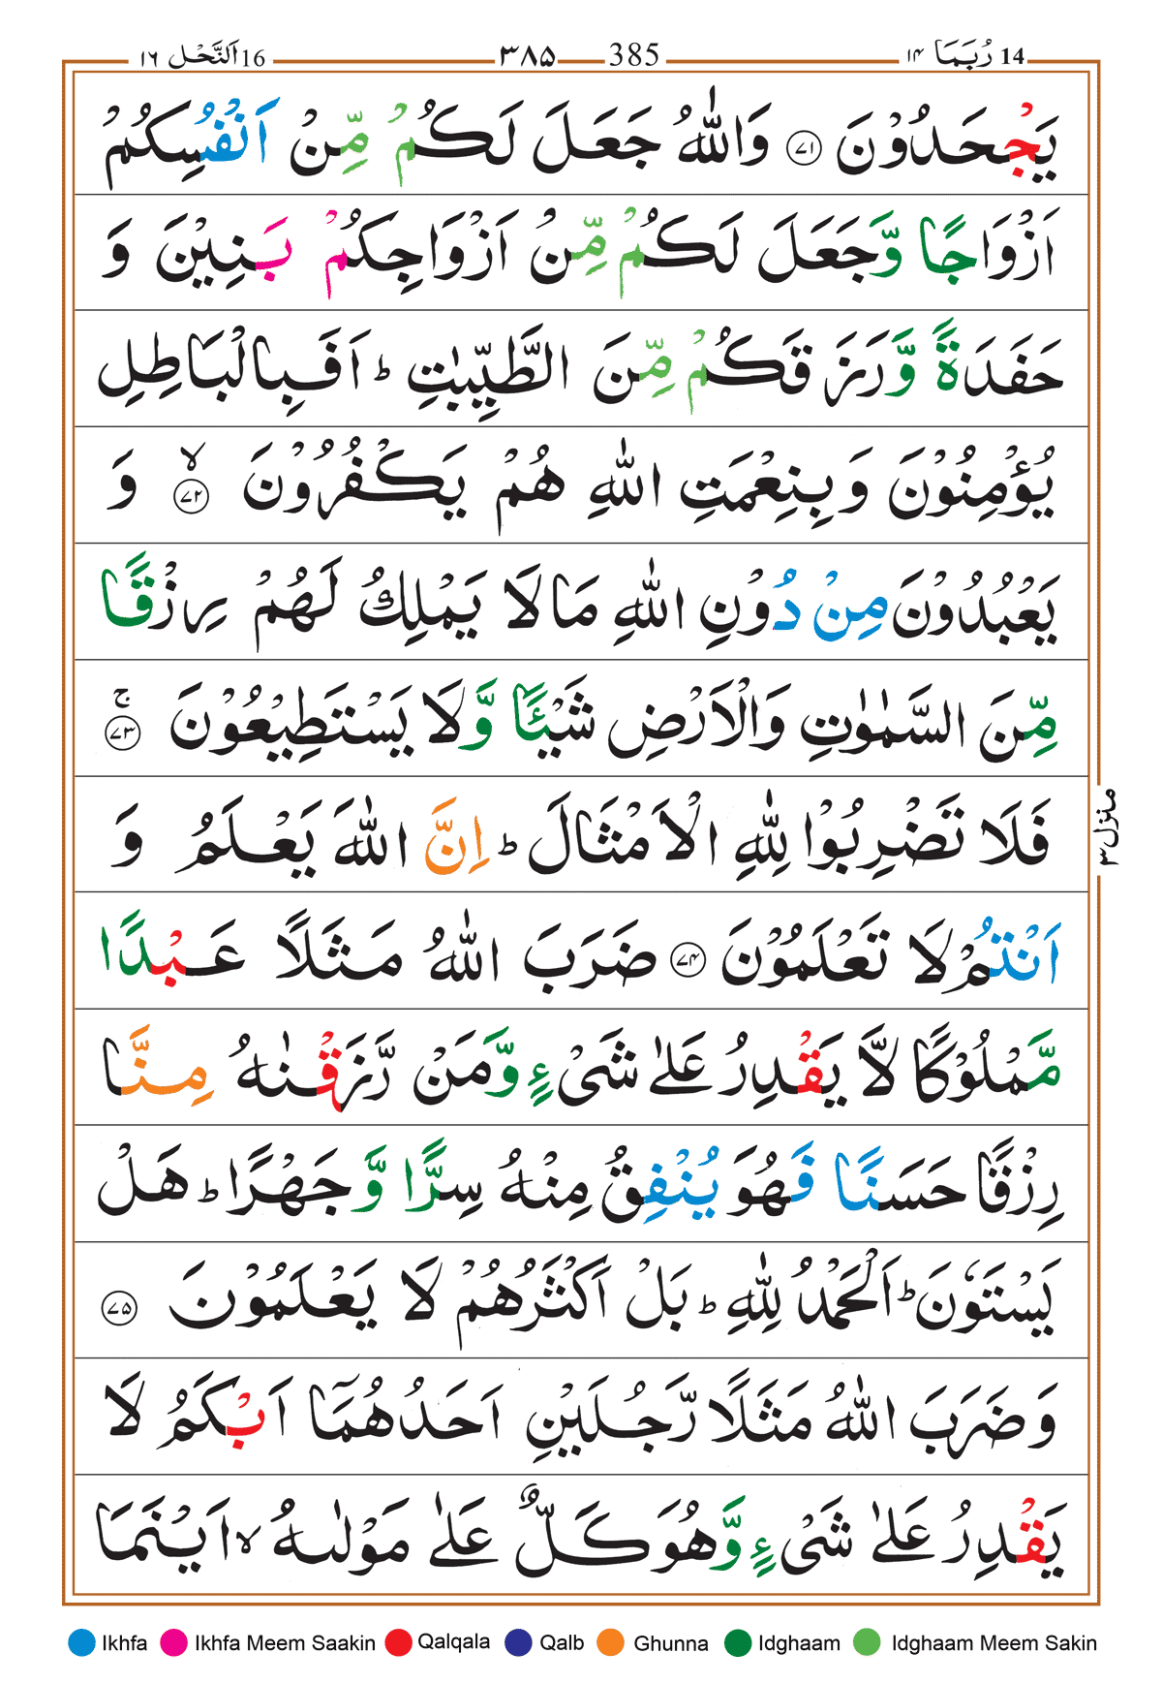 14 رُبَمَا ۱۴ 385 ۳۸۵ 16 اَلنَّحْل ۱۶
يَجْحَدُوْنَ ﴿۷۱﴾ وَاللّٰهُ جَعَلَ لَكُمْ مِّنْ اَنْفُسِكُمْ
اَزْوَاجًا وَّجَعَلَ لَكُمْ مِّنْ اَزْوَاجِكُمْ بَنِيْنَ وَ
حَفَدَةً وَّرَزَقَكُمْ مِّنَ الطَّيِّبٰتِ ؕ اَفَبِالْبَاطِلِ
يُؤْمِنُوْنَ وَبِنِعْمَتِ اللّٰهِ هُمْ يَكْفُرُوْنَ ۙ﴿۷۲﴾ وَ
يَعْبُدُوْنَ مِنْ دُوْنِ اللّٰهِ مَا لَا يَمْلِكُ لَهُمْ رِزْقًا
مِّنَ السَّمٰوٰتِ وَالْاَرْضِ شَيْـًٔا وَّلَا يَسْتَطِيْعُوْنَ ۚ﴿۷۳﴾
فَلَا تَضْرِبُوْا لِلّٰهِ الْاَمْثَالَ ؕ اِنَّ اللّٰهَ يَعْلَمُ وَ
منزل ۳
اَنْتُمْ لَا تَعْلَمُوْنَ ﴿۷۴﴾ ضَرَبَ اللّٰهُ مَثَلًا عَبْدًا
مَّمْلُوْكًا لَّا يَقْدِرُ عَلٰى شَىْءٍ وَّمَنْ رَّزَقْنٰهُ مِنَّا
رِزْقًا حَسَنًا فَهُوَ يُنْفِقُ مِنْهُ سِرًّا وَّجَهْرًا ؕ هَلْ
يَسْتَوٗنَ ؕ اَلْحَمْدُ لِلّٰهِ ؕ بَلْ اَكْثَرُهُمْ لَا يَعْلَمُوْنَ ﴿۷۵﴾
وَضَرَبَ اللّٰهُ مَثَلًا رَّجُلَيْنِ اَحَدُهُمَاۤ اَبْكَمُ لَا
يَقْدِرُ عَلٰى شَىْءٍ وَّهُوَ كَلٌّ عَلٰى مَوْلٰىهُ ۙ اَيْنَمَا
Ikhfa Ikhfa Meem Saakin Qalqala Qalb Ghunna Idghaam Idghaam Meem Sakin